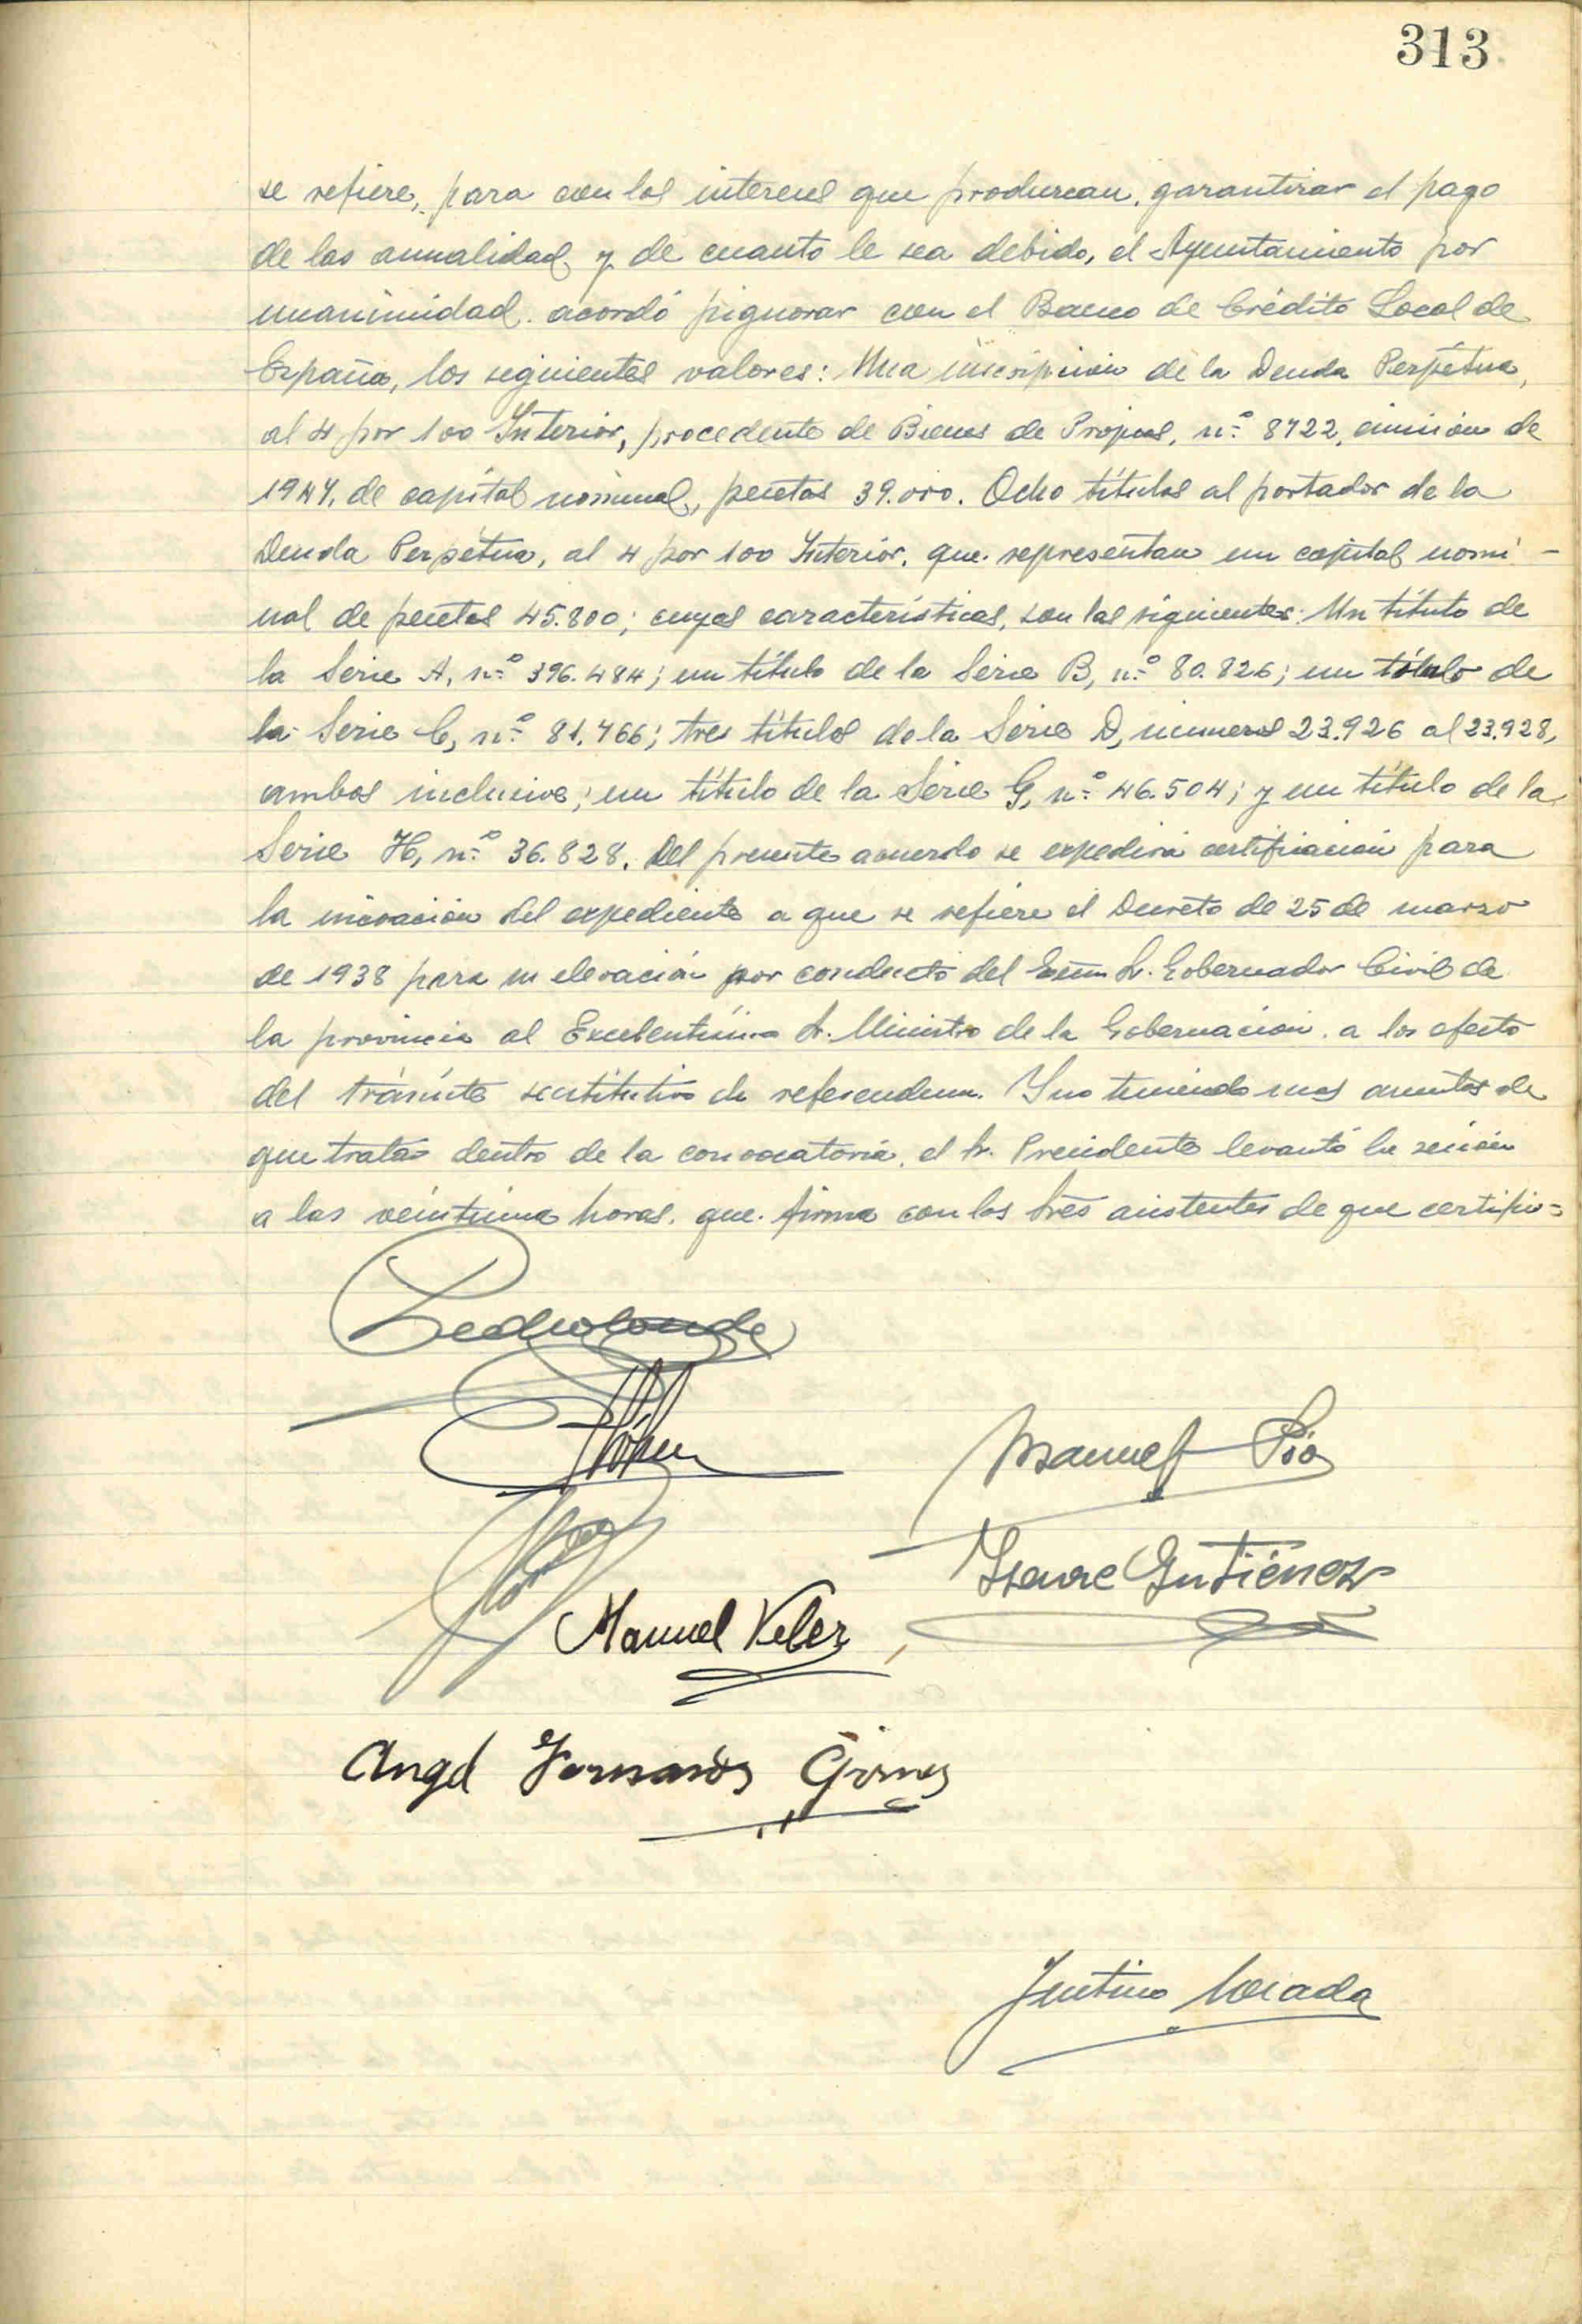 313
se refiere, para con los intereses que produzcan, garantizar el pago
de las anualidad y de cuanto le sea debido, el Ayuntamiento por
unanimidad acordó pignorar con el Banco de Crédito Local de
España, los siguientes valores: Una inscripción de la Deuda Perpétua,
al 4 por 100 Interior, procedente de Bienes de Propios, n.º 8722, emisión de
1947, de capital nominal, pesetas 39.000. Ocho títulos al portador de la
Deuda Perpétua, al 4 por 100 Interior, que representan un capital nomi-
nal de pesetas 45.800; cuyas características, son las siguientes: Un título de
la Serie A, n.º 396.484; un título de la Serie B, n.º 80.826; un título de
la Serie C, n.º 81.766; tres títulos de la Serie D, números 23.926 al 23.928,
ambos inclusive; un título de la Serie G, n.º 46.504; y un título de la
Serie H, n.º 36.828. Del presente acuerdo se expedirá certificación para
la incoación del expediente a que se refiere el Decreto de 25 de marzo
de 1938 para su elevación por conducto del Excmo Sr. Gobernador Civil de
la provincia al Excelentísimo Sr. Ministro de la Gobernación, a los efecto
del trámite sustitutivo de referendum. Y no teniendo mas asuntos de
que tratar dentro de la convocatoria, el Sr. Presidente levantó la sesión
a las veintiuna horas, que firma con los Sres asistentes de que certifico=
Pedro Conde
Manuel Pio
Isaac Gutiérrez
Manuel Velez
Angel Fernandez Gómez
Justino Losada